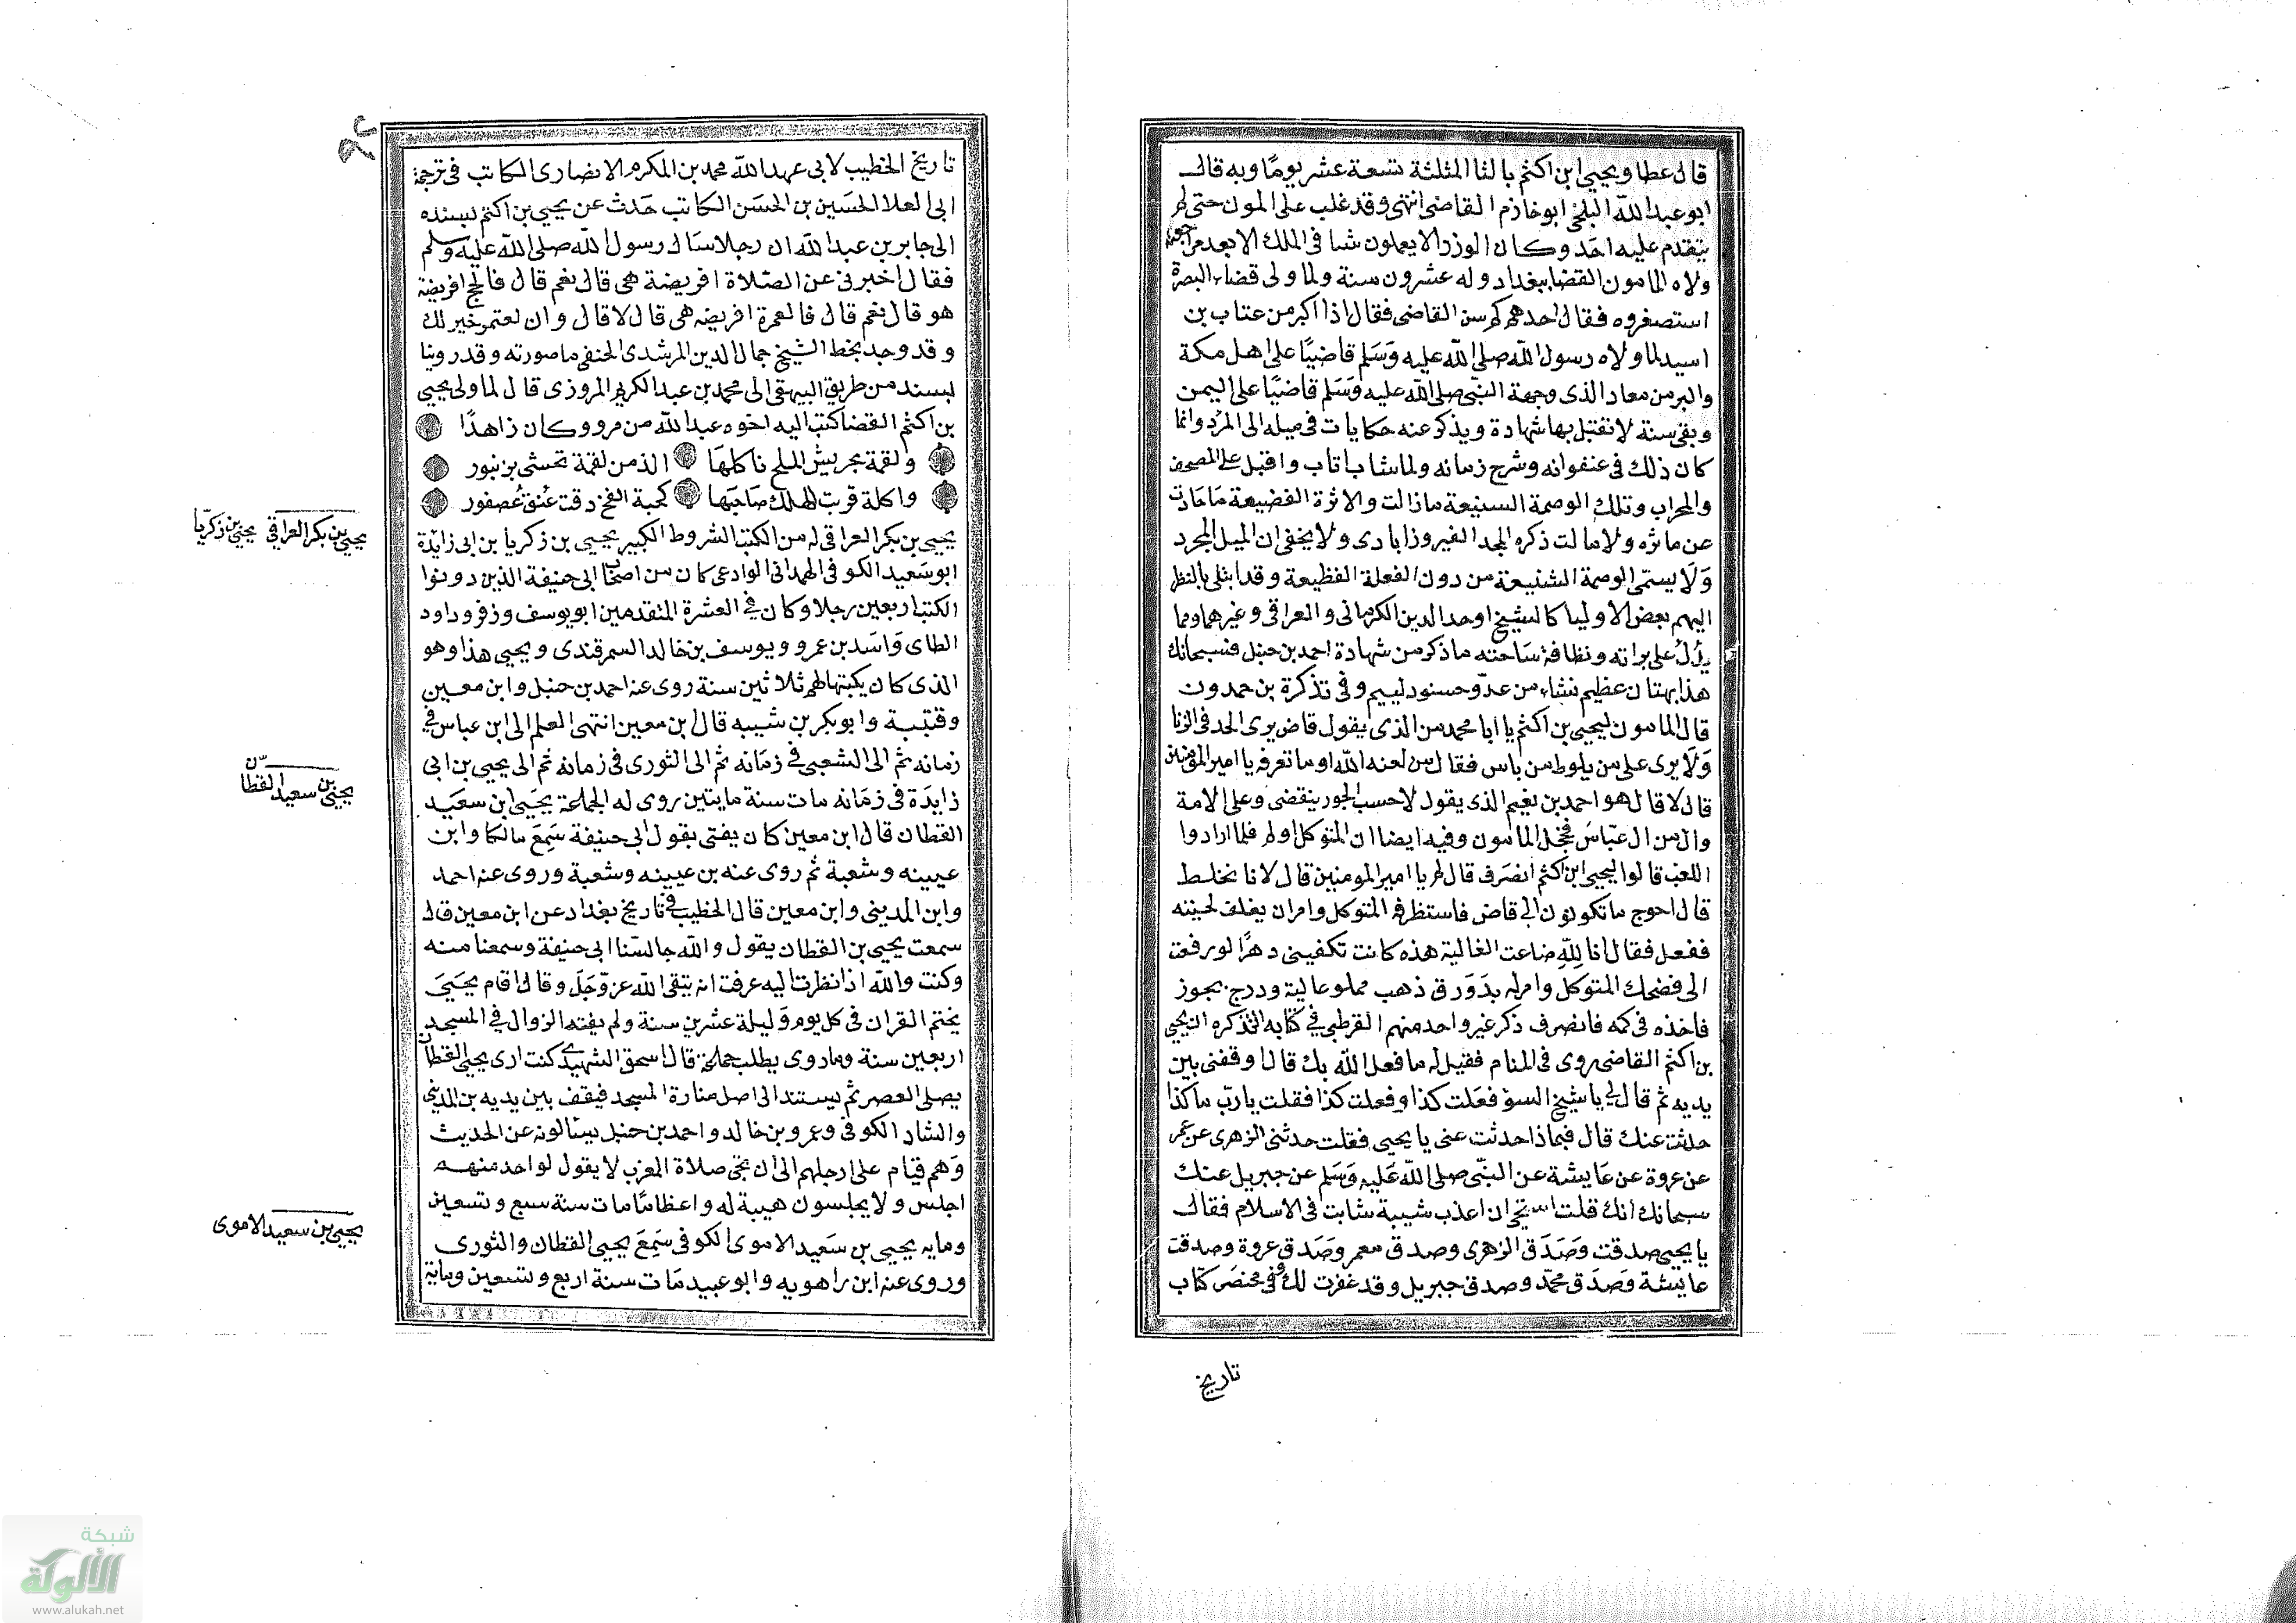 قال عطا ويحيى ابن اكثم بالثا المثلثة تسعة عشر يومًا وبه قال
ابو عبد الله البلخى ابو خازم القاضى انتهى وقد غلب على المون حتى لم
يتقدم عليه احد وكان الوزرا لا يعملون شيا فى الملك الا بعد مراجعته
ولاه المامون القضا ببغداد وله عشرون سنة ولما ولى قضاء البصرة
استصغروه فقال احدهم كم سن القاضى فقال اذا اكبر من عتاب بن
اسيد لما ولاه رسول الله صلى الله عليه وَسَلم قاضيًا على اهل مكة
والبر من معاد الذى وجهة النبى صلى الله عليه وَسَلم قاضيًا على اليمن
وبقى سنة لا تقتبل بها شهادة ويذكر عنه حكايات فى ميله الى المرد وانما
كان ذلك فى عنفوانه وشرح زمانه ولما شاب تاب واقبل على المصحف
والمحراب وتلك الوصمة السنيعة ما زالت والاثرة الفضيعة مَا حَادت
عن ماثره ولا مالت ذكره المجد الفيروزابادى ولا يخفى ان الميل المجرد
وَلا يسمّى الوصمة الشنيعة من دون الفعلة الفظيعة وقد ابتلى بالنظر
اليهم بعض الاوليا كالشيخ اوحد الدين الكرمانى والعراقى وغيرهما ومما
يدُلُ على براته ونظافة سَاحته ما ذكر من شهادة احمد بن حنبل فسبحانك
هذا بهتان عظيم نشاء من عدّو حسنود لييم وفى تذكرة بن حمدون
قال المامون ليحيى بن اكثم يا ابا محمد من الذى يقول قاض يرى الحد فى الزنا
وَلا يرى على من يلوط من باس فقال من لعنه الله اوما تعرفه يا امير المؤمنين
قال لا قال هو احمد بن نعيم الذى يقول لا حسب الجور ينقضى وعلى الامة
وال من ال عبّاسَ فخجل المامون وفيه ايضا ان المتوكل اولم فلما ارادوا
اللعب قالوا ليحيى ابن اكثم انصَرف قال لم يا امير المومنين قال لانا نخلط
قال احوج ما تكونون الى قاض فاستظرفه المتوكل وامر ان يغلف لحيته
ففعل فقال انا للهِ ضاعت الغالية هذه كانت تكفينى دهرًا لو رفعت
الى فضحك المتوكل وامر له بدَوَرق ذهب مملو عالية ودرج بجوز
فاخذه فى كمه فانصرف ذكر غير واحد منهم القرطبى فى كتابه التذكره ان يحيى
بن اكثم القاضى روى فى المنام فقيل له ما فعل الله بك قال اوقفنى بين
يديه ثم قال لى يا شيخ السؤ فعَلت كذا وفعلت كذا فقلت يا ربّ ما كذا
حدثت عنك قال فبماذا حدثت عنى يا يحيى فقلت حدثنى الزهرى عن معمر
عن عروة عن عَايشة عن النبّى صلى الله عَليه وَسَلم عن جبريل عنك
سبحانك انك قلت استحى ان اعذب شيبة شابت فى الاسلام فقال
يا يحيى صدقت وَصَدَق الزهرى وصدق معمر وصَدق عروة وصدقت
عايشة وَصَدَق محمّد وصدق جبريل وقد غفرت لك وفى مختصَر كتاب
تاريخ
تاريخ الخطيب لابى عبد الله محمد بن المكرم الانصارى الكاتب فى ترجمة
ابى العلا الحسَين بن الحسَن الكاتب حَدث عن يحيى بن اكثم بسنده
الى جابر بن عبد الله ان رجلا سَال رسول الله صلى الله عليه وسلم
فقال اخبرنى عن الصّلاة افريضة هى قال نعم قال فالحج افريضة
هو قال نعم قال فالعمرة افريضه هى قال لا قال وان تعتمر خير لك
وقد وجد بخط الشيخ جمال الدين المرشدى الحنفى ما صورته وقد روينا
بسند من طريق البيهقى الى محمد بن عبد الكريم المروزى قال لما ولى يحيى
بن اكثم القضا كتب اليه اخوه عبد الله من مرو وكان زاهدًا
ولقمة بجريش الملح ناكلها الذ من لقمة تحشى بزنبور
واكلة قربت للهلك صَاحبَها كحبة الفخ دقت عُنق عُصفور
يحيى بن بكر العراقى له من الكتب الشروط الكبير يحيى بن زكريا بن ابى زايدة
ابو سَعيد الكوفى الهمدانى الوادعى كان من اصحاب ابى حنيفة الذين دونوا
الكتب اربعين رجلا وكان فى العشرة المتقدمين ابو يوسف وزفر وداود
الطاى وَاسَد بن عمرو ويوسف بن خالد السمرقندى ويحيى هذا وهو
الذى كان يكتبها لهم ثلاثين سنة روى عنه احمد بن حنبل وابن معين
وقتيبة وابو بكر بن شيبه قال بن معين انتهى العلم الى ابن عباس فى
زمانه ثم الى الشعبى فى زمَانه ثم الى الثورى فى زمانه ثم الى يحيى بن ابى
زايدَة فى زمَانه مات سنة مايتين روى له الجماعة يحيَى ابن سعَيد
القطان قال ابن معين كان يفتى بقول ابى حنيفة سَمِعَ مالكا وابن
عيينه وشعبة ثم روى عنه بن عيينه وشعبة وروى عنه احمد
وابن المدينى وابن معين قال الخطيب فى تاريخ بغداد عن ابن معين قال
سمعت يحيى بن القطان يقول والله جالسنا ابى حنيفة وسمعنا منه
وكنت والله اذا نظرت اليه عرفت انه يتقى الله عز وّجَل وقال اقام يحيَى
يختم القران فى كل يوم وَليلة عشرين سنة ولم يفته الزوال فى المسجد
اربعين سنة وما روى يطلب جماعة قال اسحق الشهيدى كنت ارى يحيى القطان
يصلى العصر ثم يستند الى اصل منارة المسجد فيقف بين يديه بن المدينى
والشاد الكوفى وعمرو بن خالد واحمد بن حنبل يسالونه عن الحديث
وَهم قيام على ارجلهم الى ان تحى صلاة المغرب لا يقول لواحد منهم
اجلس ولا يجلسون هيبة له واعظامًا مات سنة سبع وتسعين
ومايه يحيى بن سَعيد الاموى الكوفى سَمِعَ يحيى القطان والثورى
وروى عنه ابن راهويه وابو عبيد مَات سنة اربع وتسعين وماية
يحيى بن بكر العراقى يحيى بن زكريا
يحيى بن سعيد القطان
يحيى بن سعيد الاموى
شبكة
الألوكة
www.alukah.net